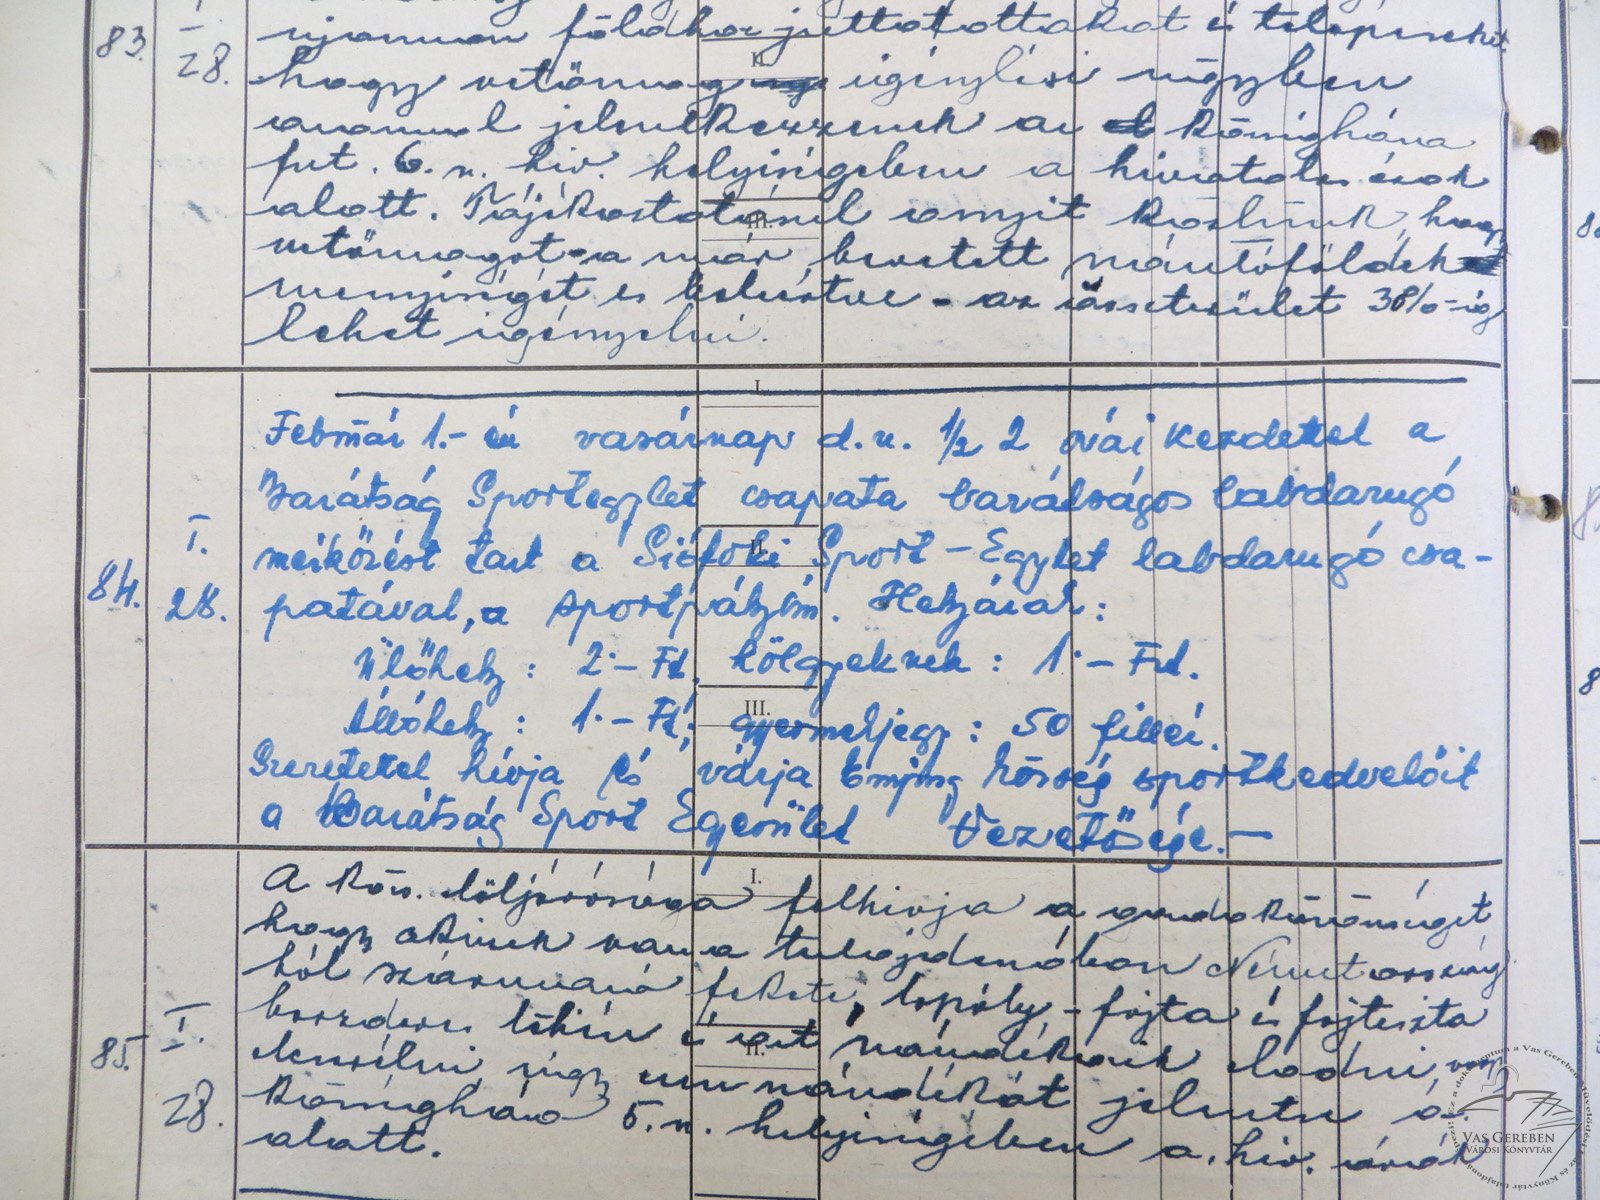 83.
I.
28.
ujonnan földhoz juttatottakat és telepeseket,
hogy vetőmag igénylési ügyben
azonnal jelentkezzenek a községháza
fszt. 6. n. hiv. helyiségében a hivatalos órák
alatt. Tájékoztatásul annyit közlünk, hogy
vetőmagot - a már bevetett szántóföldek
mennyiségét is beleértve - az összterület 38%-ig
lehet igényelni.
84.
I.
28.
Február 1.-én vasárnap d.u. 1/2 2 órai kezdettel a
Barátság Sportegylet csapata barátságos labdarugó
mérkőzést tart a Siófoki Sport-Egylet labdarugó csa-
patával, a sportpályán. Helyárak:
Ülőhely: 2.- Ft, hölgyeknek: 1.- Frt.
Állóhely: 1.- Ft; gyermekjegy: 50 fillér.
Szeretettel hívja és várja Enying község sportkedvelőit
a Barátság Sport Egyesület Vezetősége.-
85.
I.
28.
A közs. előljárósága felhivja a gazdaközönséget
hogy akinek van a tulajdonában Németország
ból származó fekete, lapály-fajta és fajtiszta
tehén és azt szándékozik eladni, vagy
cserélni úgy ezen szándékát jelentse a
községháza 5. n. helyiségében a hiv. órák
alatt.
I.
II.
III.
VAS GEREBEN
VÁROSI KÖNYVTÁR